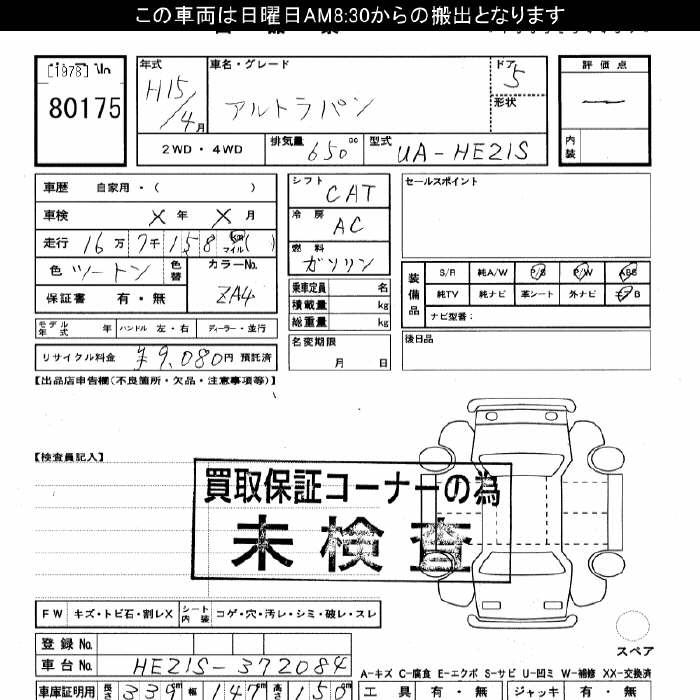 この車両は日曜日AM8:30からの搬出となります
[1978] Vn
80175
年式 H15/4月
車名・グレード アルトラパン
ドア 5
形状
評価点
内装
2WD・4WD 排気量 650cc 型式 UA-HE21S
車歴 自家用・( )
車検 × 年 × 月
走行 16万7千158 km マイル ( )
色 ツートン 色替 カラーNo. ZA4
保証書 有・無
シフト CAT
冷房 AC
燃料 ガソリン
乗車定員 名
積載量 kg
総重量 kg
名変期限 月 日
セールスポイント
装備品 S/R 純A/W P/S P/W ABS
純TV 純ナビ 革シート 外ナビ エアB
ナビ型番:
後日品
モデル年式 年 ハンドル 左・右 ディーラー・並行
リサイクル料金 ¥9,080円 預託済
【出品店申告欄(不良箇所・欠品・注意事項等)】
【検査員記入】
買取保証コーナーの為
未検査
FW キズ・トビ石・割レX シート内装 コゲ・穴・汚レ・シミ・破レ・スレ
スペア
登録No.
車台No. HE21S-372084
A-キズ C-腐食 E-エクボ S-サビ U-凹ミ W-補修 XX-交換済
車庫証明用 長さ 339cm 幅 147cm 高さ 150cm 工具 有・無 ジャッキ 有・無